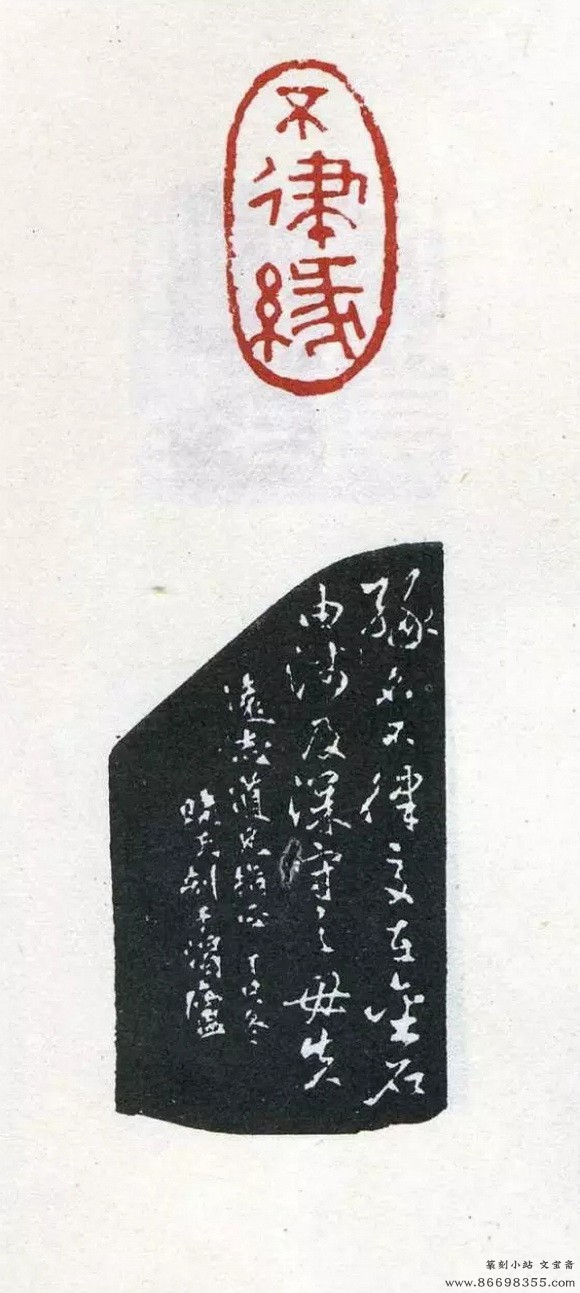 不律緣
緣名不律交在金石
由淺及深守之毋失
遠志道兄指正丁巳冬
天刻于廬
篆刻小站 文宝斋
www.86698355.com